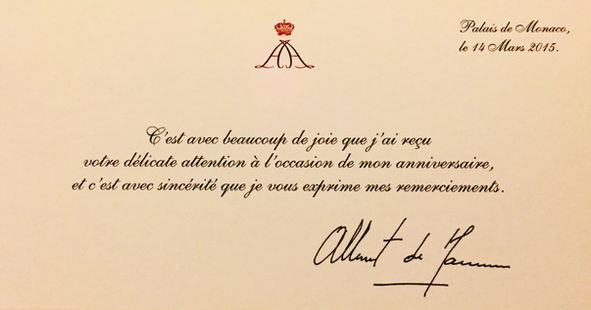 Palais de Monaco,
le 14 Mars 2015.
C'est avec beaucoup de joie que j'ai reçu
votre délicate attention à l'occasion de mon anniversaire,
et c'est avec sincérité que je vous exprime mes remerciements.
Albert de Monaco